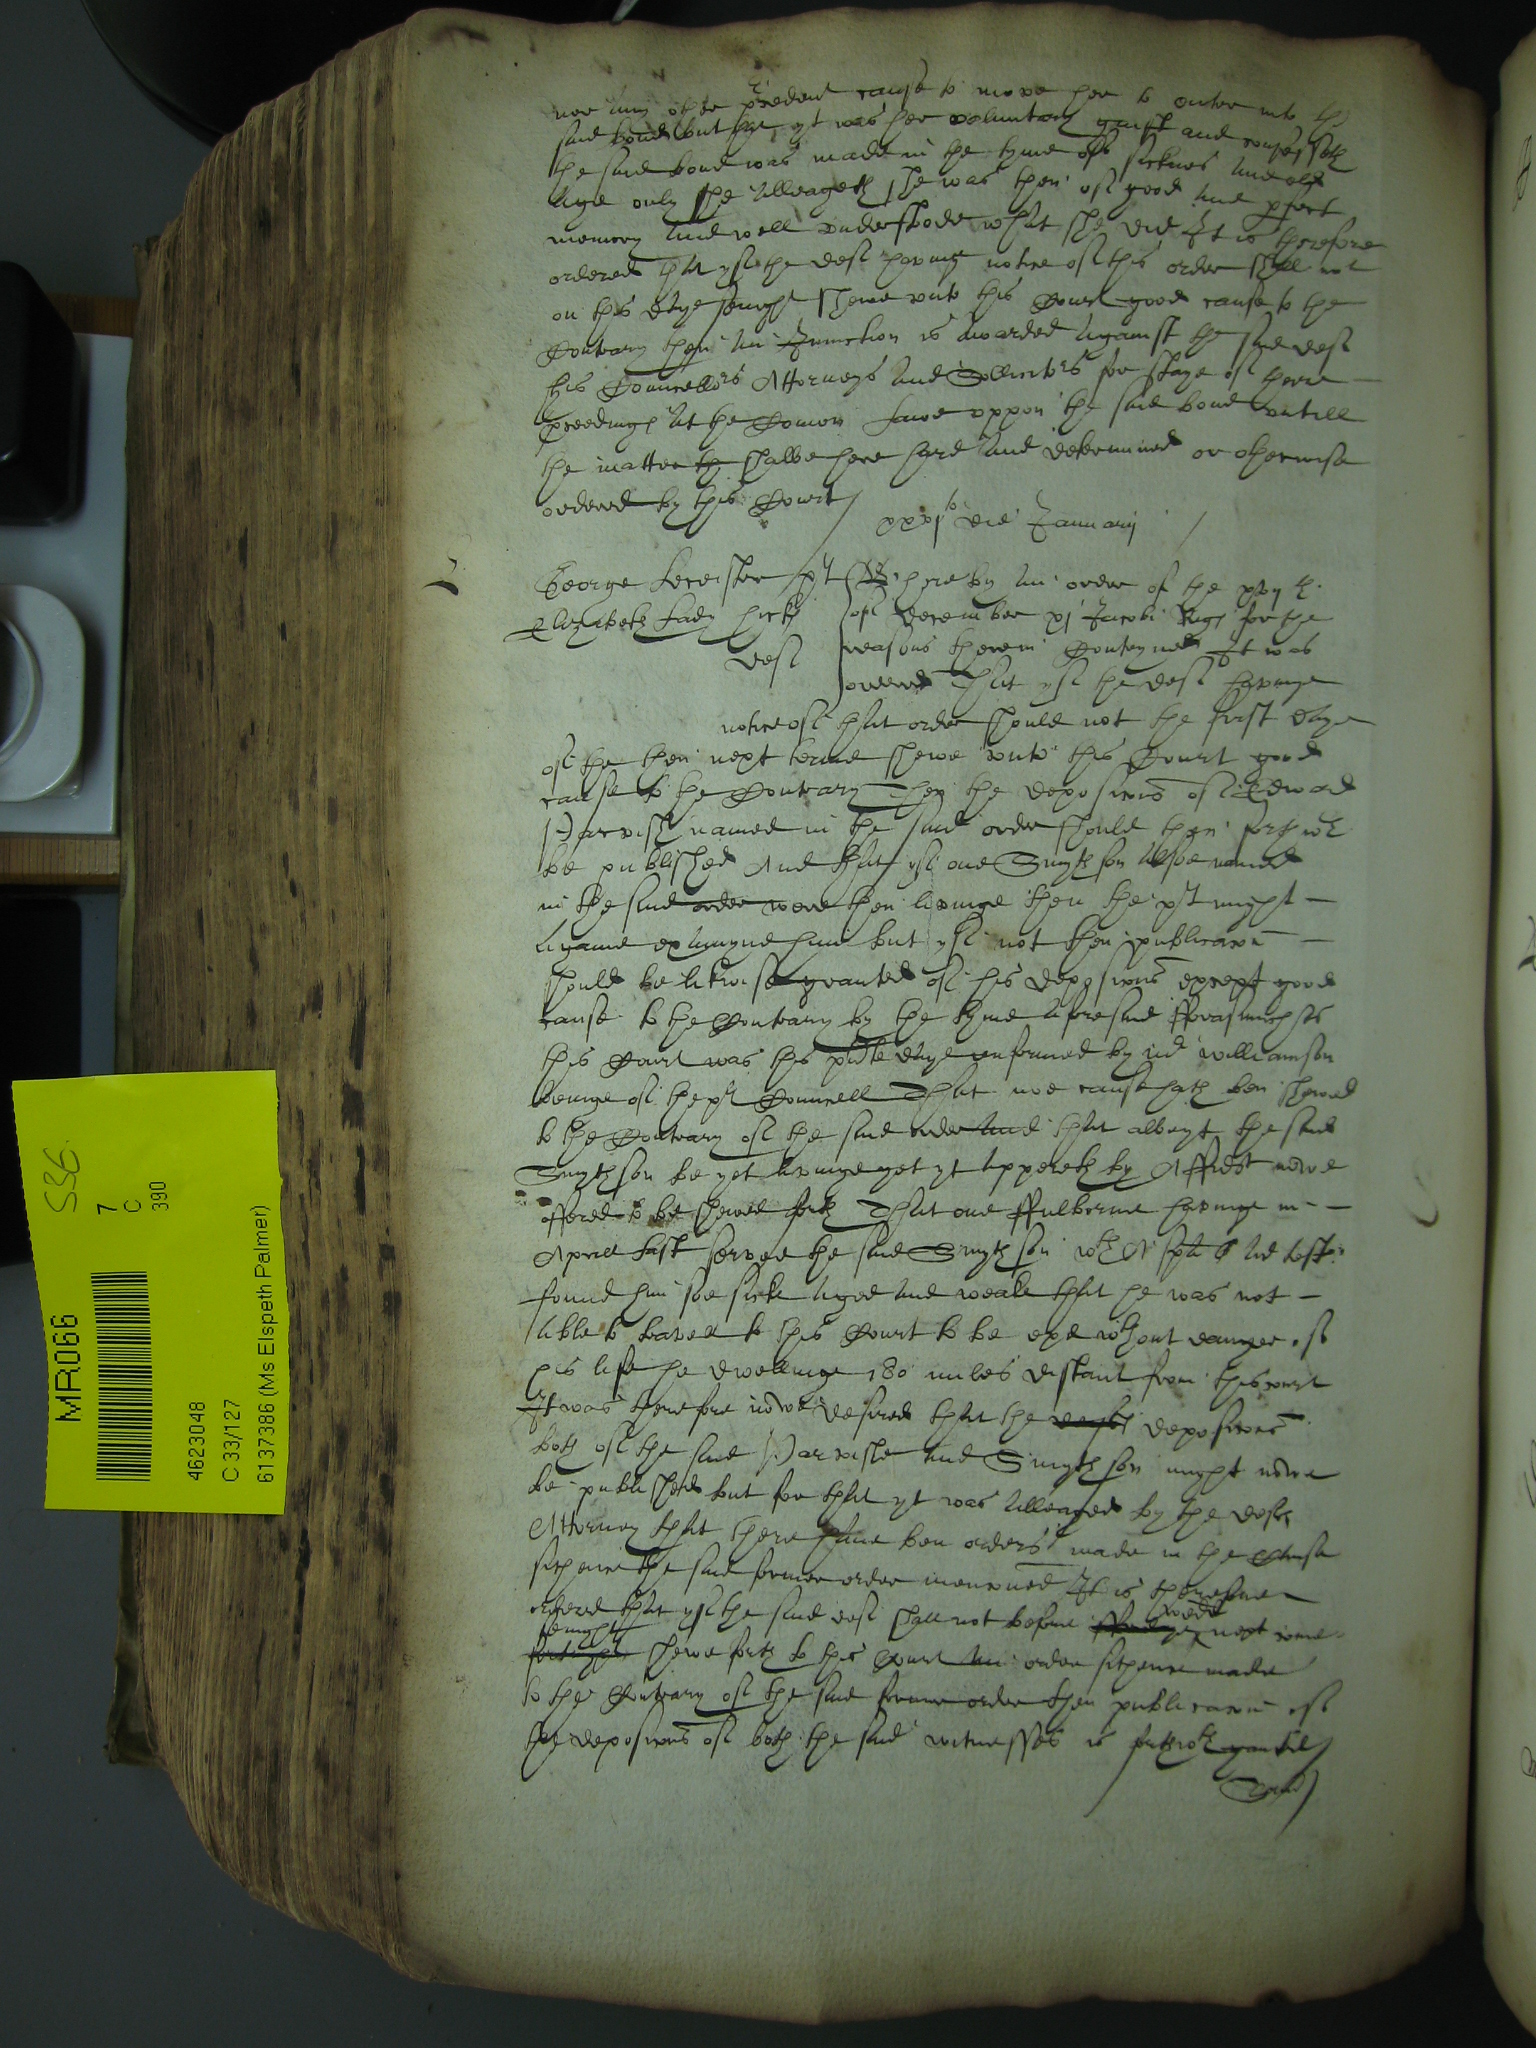 nor any other precedent cause to move her to enter into the
said bond but that yt was her voluntary guift and confesseth
the said bond was made in the tyme of sicknes and old
age only she alleageth she was then of good and perfect
memory and well understode what she did It is therefore
ordered that yf the deft having notice of this order shall not
on this daye senight shewe unto this Court good cause to the
Contrary then an Iniunction is awarded against the said deft
his Councellors Attorneys and Sollicitors for staye of there
proceedings at the Comon Lawe uppon the said bond untill
the matter th shalbe here hard and determined or otherwise
ordered by this Court
xxxj to die Januarij
George Leicester plt
Elizabeth Lady
deft
Where by an order of the
of December xj Jacobi Regis for the
reasons therein Conteyned It was
ordered That yf the deft havinge
notice of that order should not the first daye
of the then next terme shewe unto this Court good
cause to the Contrary Then the deposicons of Edward
Harvist named in the said order should then forthwth
be published And that yf one Smythson alsoe named
in the said order were then livinge then the plt might
againe examyne him but yf not then publicacon
should be likwise graunted of his deposicons except good
cause to the Contrary by the tyme aforesaid fforasmuch as
this Court was this pnte daye enformed by mr Williamson
beinge of the plts Councell That noe cause hath ben shewed
to the Contrary of the said order and that albeyt the said
Smythson be yet livinge yet yt appereth by Affidt nowe
offered to be shewed forth That one ffulberne havinge in
Aprill last served the said Smythson wth A spa ad test
found him soe sicke aged and weake that he was not
able to travell to this Court to be exd wthout danger of
his life he dwellinge 180 miles distant from this court
It was therefore nowe desired that the deposicons
both of the said Harviste and Smythson might nowe
be published but for that yt was alleaged by the defts
Attorney that there have ben orders made in the Cause
sithence the said former order mencioned It is therefore
ordered that yf the said deft shall not before next come
senight
shewe forth to this Court an order sithence made
to the Contrary of the said former order then publicacon of
the deposicons of both the said witnesses is forthwth graunted
MR066
536
7
C
390
4623048
C 33/127
6137386 (Ms Elspeth Palmer)